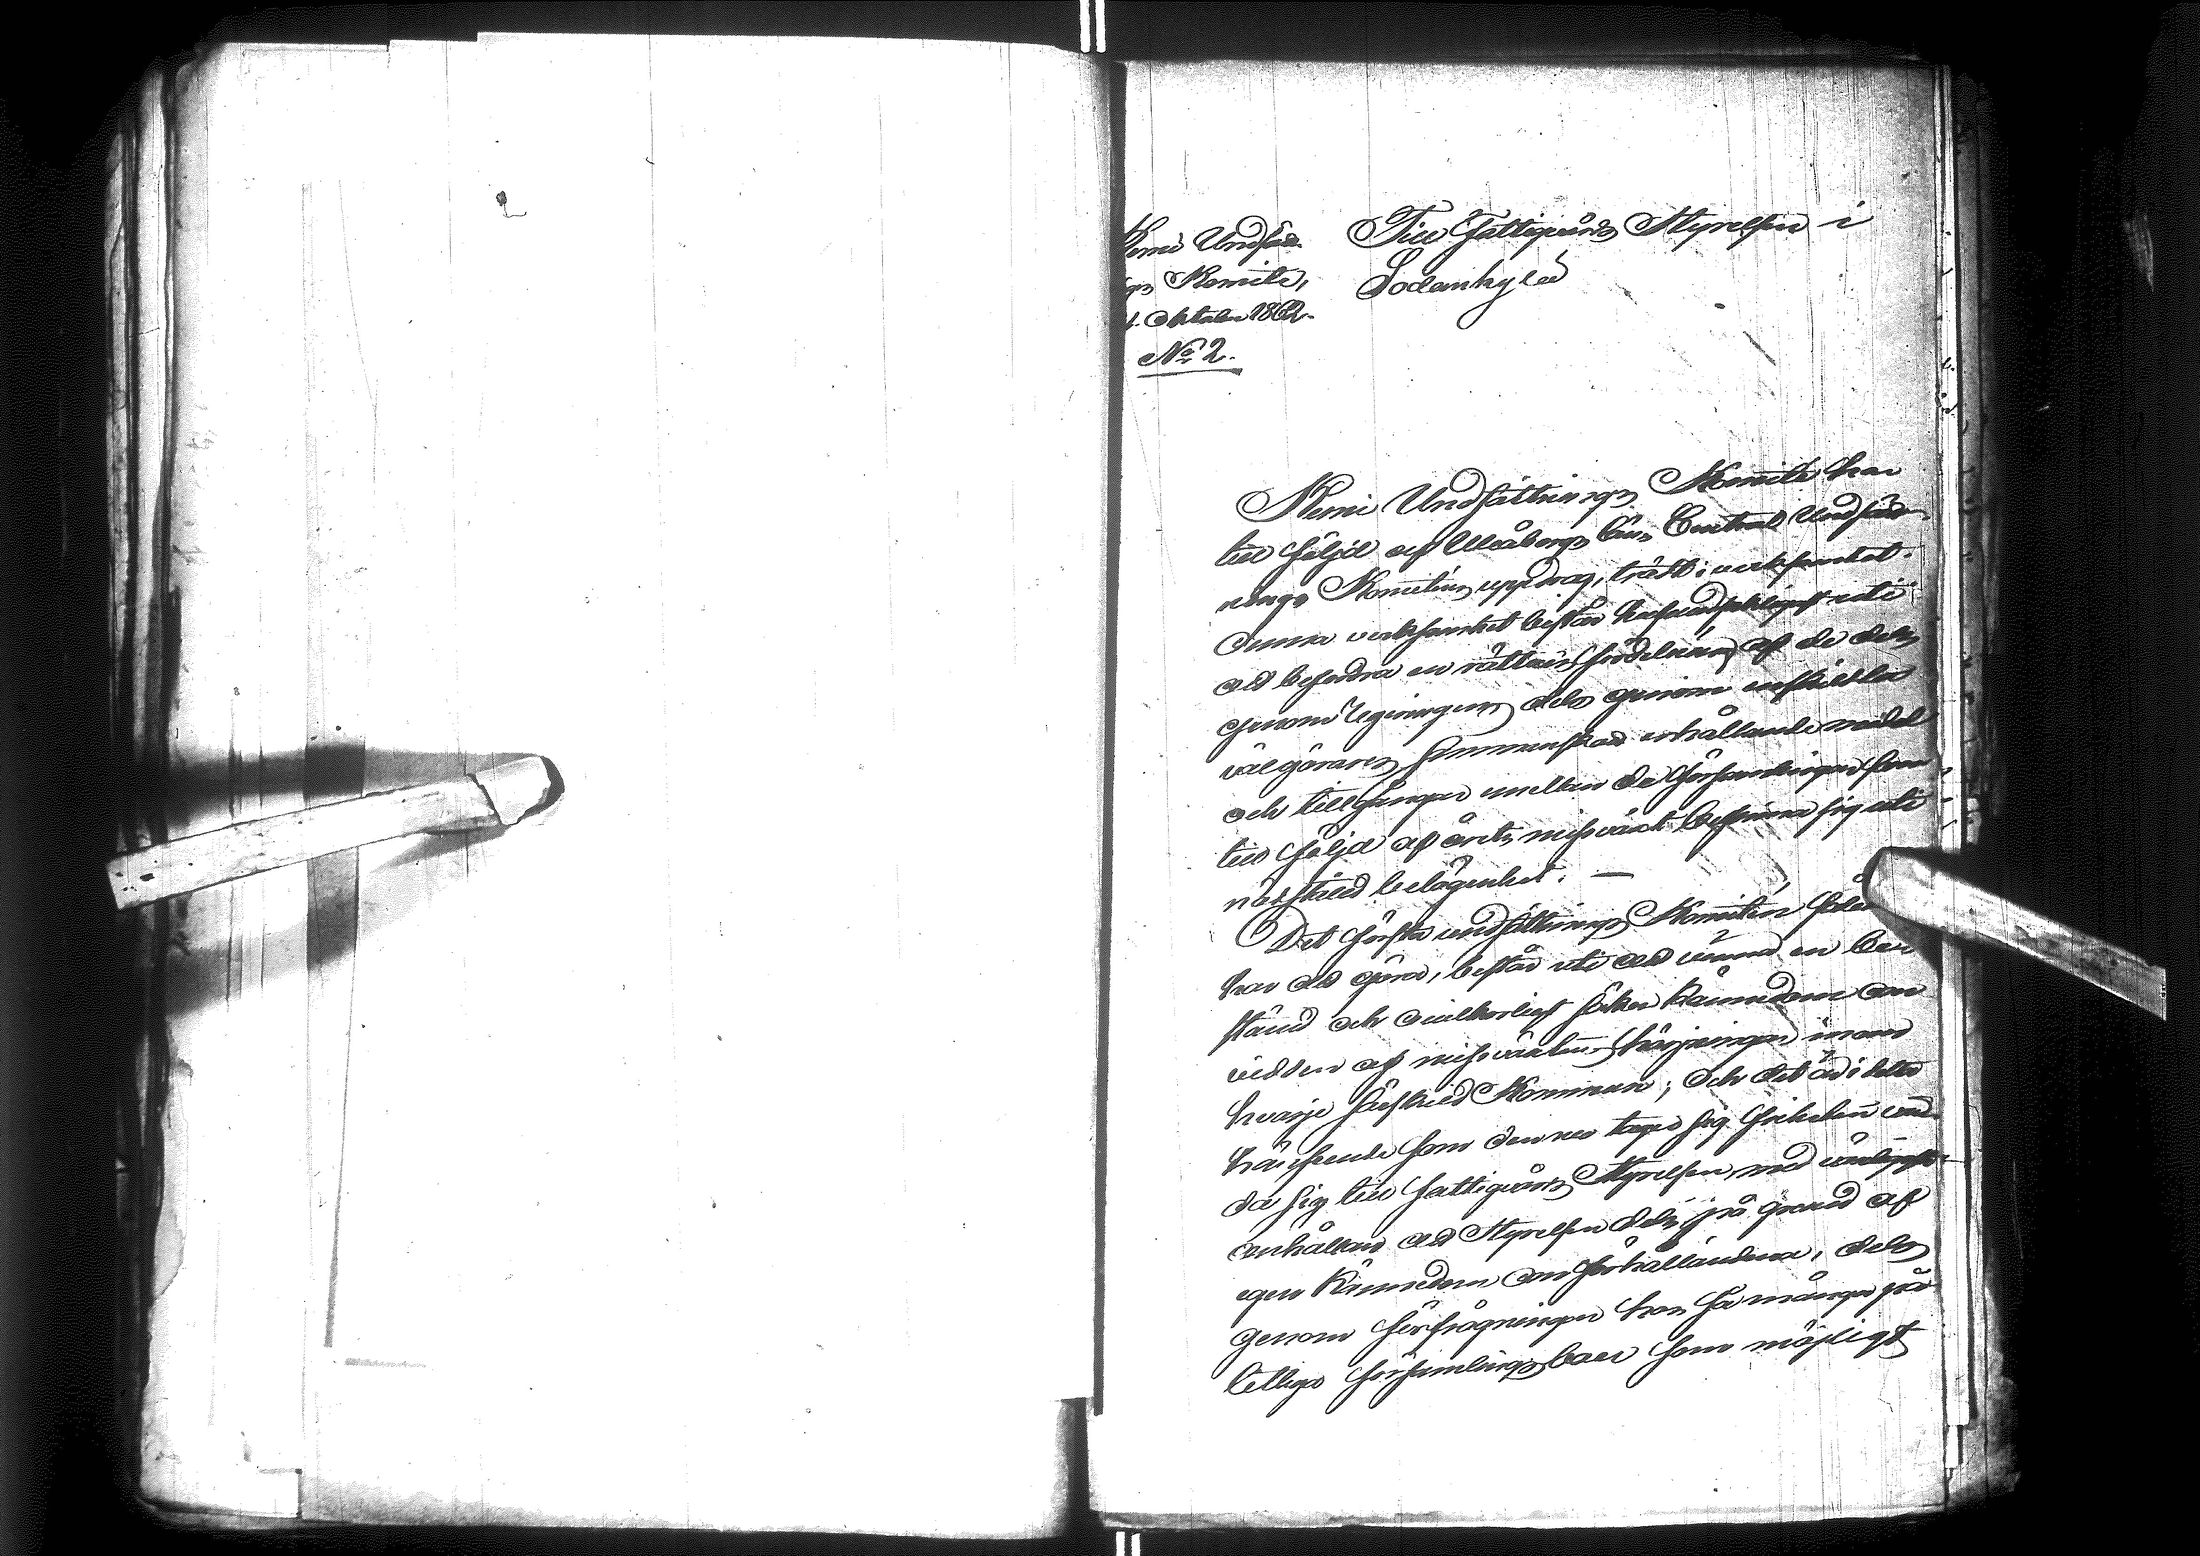 Kemi Undsätt-
ngs Komite,
1. Oktober 1862.
No 2.
Till Fattigvårds Styrelsen i
Sodankylä
Kemi Undsättnings Komite har
till följd af Uleåborgs läns Central Undsätt-
nings Komitéens uppdrag, trädt i verksamhet.
Denna verksamhet består hufvudsakligast uti
att befordra en rättvis fördelning af de dels
genom regeringens dels genom enskildta
välgörares sammanskott erhållande medel
och tillgångar mellan de församlingar som
till följd af årets missväxt befinna sig uti
nödställd belägenhet. —
Det första undsättnings Komitéen
har att göra, består uti att vinna en be-
stämd och ovilkorligt säker kännedom om
vidden af missväxtens härjningar inom
hvarje särskild Kommun; och det är i detta
hänseende som denna tager sig friheten vän-
da sig till Fattigvårds Styrelsen, med
anhållan att Styrelsen dels på grund af
egen kännedom om förhållandena, dels
genom förfrågningar hos så många på-
litliga församlingsboer som möjligt